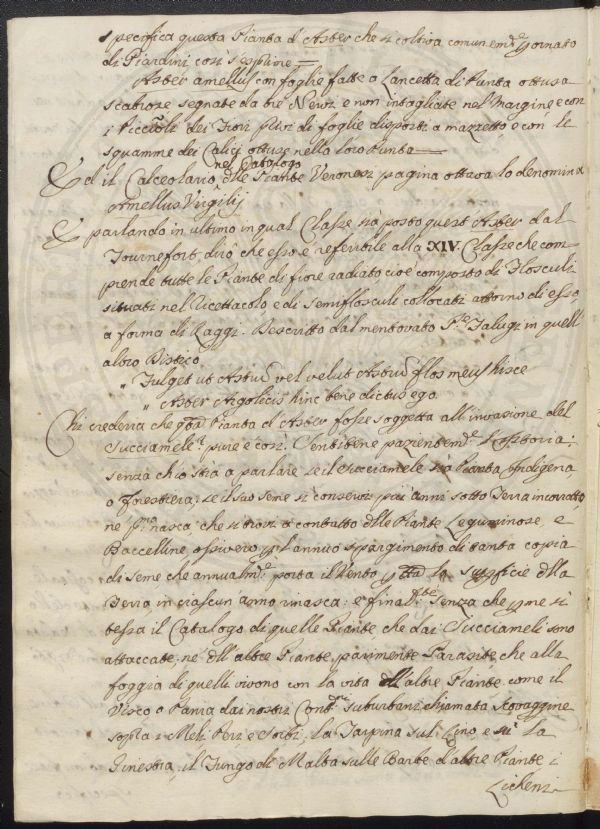 specifica questa Pianta d'Aster che si coltiva comunem.e p ornato
di Giardini così s'esprime =
Aster amellus con foglie fatte a Lancetta di Punta ottusa
scabrose segnate da tre Nervi e non intagliate nel Margine e con
i Picciòli dei Fiori privi di foglie disposti a mazzetto e con le
squamme dei Calicj ottuse nella loro Punta
nel Catalogo
Ed il Calceolario, dlle Piante Veronesi pagina ottava lo denomina
Amellus Virgilij
E parlando in ultimo in qual Classe sia posto quest'Aster dal
Tournefort, dirò che esso è referibile alla XIV. Classe che com-
prende tutte le Piante di fiore radiato cioè composto di Flosculi
situati nel Ricettacolo e di Semiflosculi collocati attorno di esso,
a forma di Raggi. Descritto dal mentovato P.re Talugi in quell'
altro Distico
" Fulget ut Astrũ vel velut Astrũ flos meus hisce
" Aster Argolecis hinc bene dictus ego.
Chi crederia che Pianta d'Aster fosse soggetta all'invasione del
Succiamele? pure è così. Sentitene pazientem.e l'Istoria;
senza ch'io stia a parlare se il Succiamele sia Pianta Indigena,
o Forestiera; se il suo seme si conservi più anni sotto Terra incorrotto,
ne p.ma nasca, che si trovi a contatto dlle Piante Leguminose, e
Baccelline, ossivero p l'annuo spargimento di tanta copia
di seme che annualm.e porta il Vento p tta la supficie dlla
Terra in ciascun anno rinasca: e final.te senza che p me si
tessa il Catalogo di quelle Piante che dai Succiameli sono
attaccate, né dll'altre Piante, parimente Parasite, che alla
foggia di quelli vivono con la vita dll'altre Piante come il
Visco o Pania dai nostri Cont.ni suburbani chiamata Scovaggine
sopra i Meli Peri e Sorbi, la Tarpina sul Lino, e su la
Ginestra, il Fungo di Malta sulle Barbe d'altre Piante i
Licheni